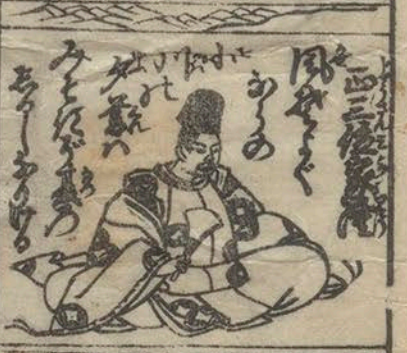 正三位家隆
風そよぐ
ならの
小川の
夕暮は
みそぎぞ夏の
しるしなりける